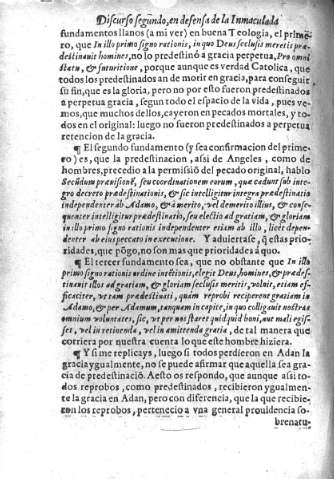 Discurso segundo, en defensa de la Inmaculada
fundamentos llanos (a mi ver) en buena Teologia, el prime-
ro, que In illo primo signo rationis, in quo Deus seclusis meretis præ-
destinauit homines, no lo predestinó a gracia perpetua, Pro omni
statu, & futuritione, porque aunque es verdad Catolica, que
todos los predestinados an de morir en gracia, para conseguir
su fin, que es la gloria, pero no por esto fueron predestinados
a perpetua gracia, segun todo el espacio de la vida, pues ve-
mos, que muchos dellos, cayeron en pecados mortales, y to-
dos en el original: luego no fueron predestinados a perpetua
retencion de la gracia.
¶ El segundo fundamento (y sea confirmacion del prime-
ro) es, que la predestinacion, assi de Angeles, como de
hombres, precedio a la permissiõ del pecado original, hablo
Secũdum præuisionẽ, seu coordinationem rerum, quæ cadunt sub inte-
gro decreto prædestinationis, & sic intelligitur integra prædestinatio
independenter ab Adamo, & à merito, vel demerito illius, & conse-
quenter intelligitur prædestinatio, seu electio ad gratiam, & gloriam
in illo primo signo rationis independenter etiam ab illo, licet depen-
denter ab eius peccato in executione. Y aduiertase, q̃ estas prio-
ridades, que põgo, no son mas que prioridades à quo.
¶ El tercer fundamento sea, que no obstante que In illo
primo signo rationis ordine intẽtionis, elegit Deus, homines, & prædes-
tinauit illos ad gratiam, & gloriam seclusis meritis, voluit, etiam ef-
ficaciter, vt tam prædestinati, quam reprobi reciperent gratiam in
Adamo, & per Adamum, tanquam in capite, in quo colligauit nostras
omnium voluntates, sic, vt per nos staret quidquid boni, aut mali egis-
ses, vel in retinenda, vel in amittenda gratia, de tal manera que
corriera por nuestra cuenta lo que este hombre hiziera.
¶ Y si me replicays, luego si todos perdieron en Adan la
gracia ygualmente, no se puede afirmar que aquella sea gra-
cia de predestinació. A esto os respondo, que aunque assi to-
dos reprobos, como predestinados, recibieron ygualmen-
te la gracia en Adan, pero con diferencia, que la que recibie-
ron los reprobos, pertenecio a vna general prouidencia so-
brenatu-